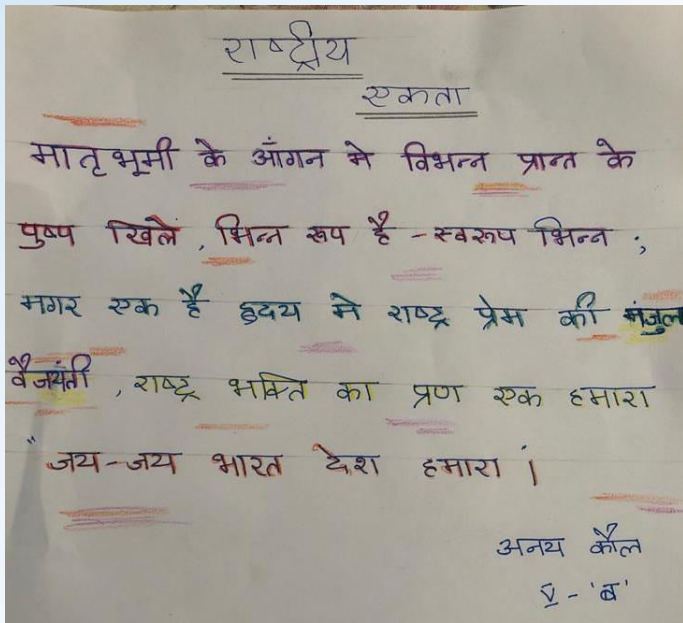 राष्ट्रीय
एकता
मातृभूमी के आँगन मे विभन्न प्रान्त के
पुष्प खिलें , भिन्न रूप है - स्वरूप भिन्न ;
मगर एक है हृदय मे राष्ट्र प्रेम की मंजुल
वैजयंती , राष्ट्र भक्ति का प्रण एक हमारा
" जय-जय भारत देश हमारा ।
अनय कौल
V - 'ब'